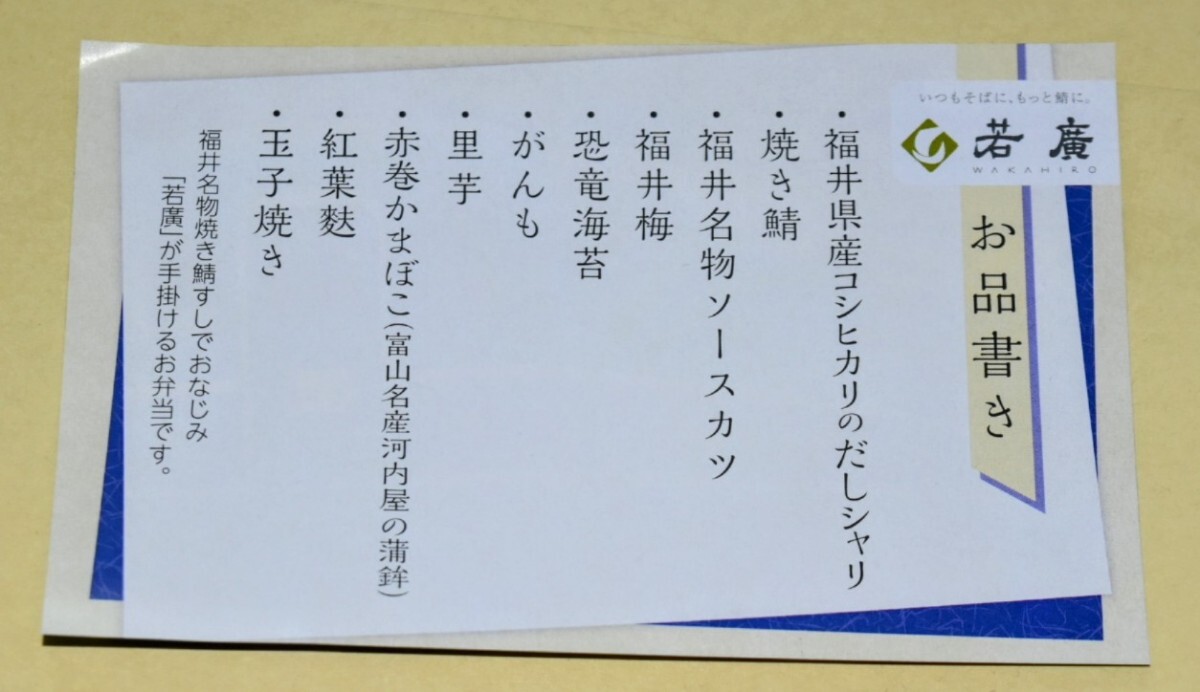 いつもそばに、もっと鯖に。
若廣
WAKAHIRO
お品書き
・福井県産コシヒカリのだしシャリ
・焼き鯖
・福井名物ソースカツ
・福井梅
・恐竜海苔
・がんも
・里芋
・赤巻かまぼこ(富山名産河内屋の蒲鉾)
・紅葉麩
・玉子焼き
福井名物焼き鯖すしでおなじみ
「若廣」が手掛けるお弁当です。